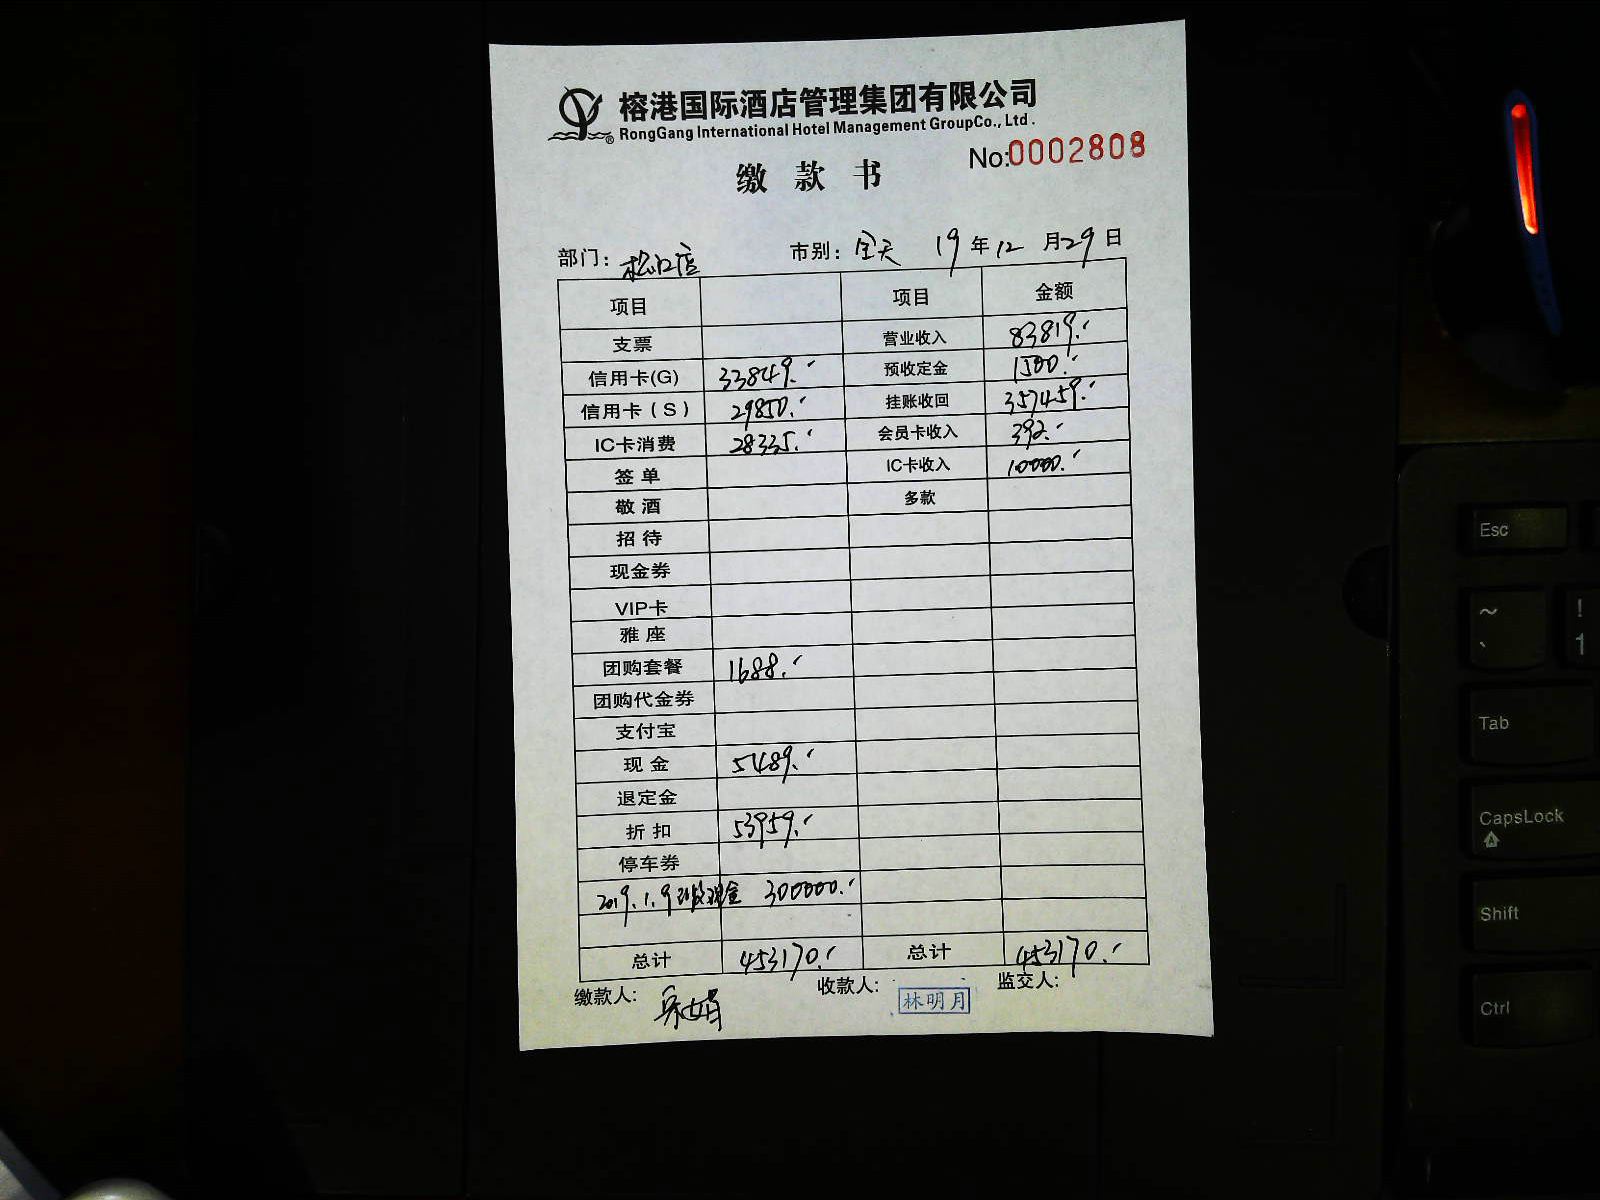 榕港国际酒店管理集团有限公司
® RongGang International Hotel Management GroupCo., Ltd.
缴款书 No:0002808
部门: 松江店 市别: 全天 19年12月29日
项目 项目 金额
支票 营业收入 83819.-
信用卡(G) 33849.- 预收定金 1500.-
信用卡(S) 29850.- 挂账收回 357459.-
IC卡消费 28335.- 会员卡收入 392.-
签单 IC卡收入 10000.-
敬酒 多款
招待
现金券
VIP卡
雅座
团购套餐 1688.-
团购代金券
支付宝
现金 5489.-
退定金
折扣 53959.-
停车券
2019.1.9 现金 300000.-
总计 453170.- 总计 453170.-
缴款人: 收款人: 林明月 监交人:
Esc
~ !
` 1
Tab
CapsLock
Shift
Ctrl